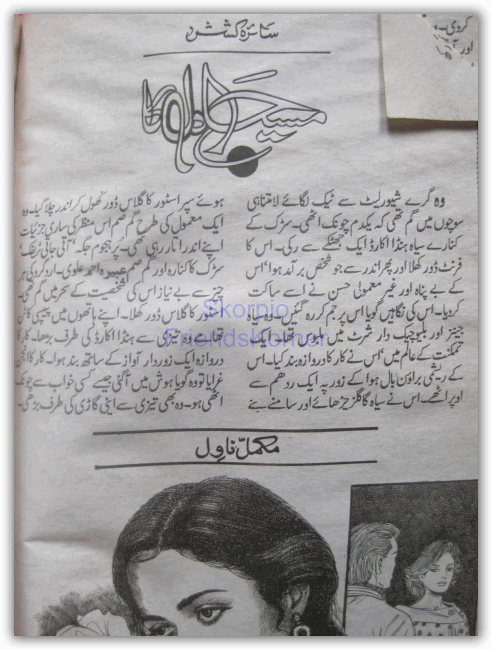 کردی۔
اور
سائرہ کشش
وہ گرے شیورلیٹ سے ٹیک لگائے لامتناہی
سوچوں میں گم تھی کہ یکدم چونک اٹھی۔ سڑک کے
کنارے سیاہ ہنڈا اکارڈ ایک جھٹکے سے رکی۔ اس کا
فرنٹ ڈور کھلا اور پھر اندر سے جو شخص برآمد ہوا 'اس
کے بے پناہ اور غیر معمولی حسن نے اسے ساکت
کردیا۔ اس کی نگاہیں گویا اس پر جم کر رہ گئیں۔ وہ سیاہ
جینز اور بلیو چیک دار شرٹ میں ملبوس تھا۔ ایک
تمکنت کے عالم میں 'اس نے کار کا دروازہ بند کیا۔ اس
کے ریشمی براؤن بال ہوا کے زور پہ ایک ردھم سے
اوپر اٹھے۔ اس نے سیاہ گاگلز چڑھائے اور سامنے بنے
ہوئے سپر اسٹور کا گلاس ڈور کھول کر اندر چلا گیا۔ وہ
ایک معمول کی طرح گم صم اس منظر کی ساری جزئیات
اپنے اندر اتار رہی تھی۔ پر ہجوم جگہ 'آتی جاتی ٹریفک'
سڑک کا کنارہ اور گم صم عبیرہ احمد علوی۔ ارد گرد کی ہر
چیز سے بے نیاز اس کی شخصیت کے سحر میں گم تھی۔
گلاس ڈور کھلا۔ اپنے ہاتھوں میں پیپسی کا ٹن
تھامے وہ تیزی سے ہنڈا اکارڈ کی طرف بڑھا۔ کار کا
دروازہ ایک زوردار آواز کے ساتھ بند ہوا۔ کار کا انجن
غرایا تو وہ گویا ہوش میں آگئی جیسے کسی خواب سے چونک
اٹھی ہو۔ وہ بھی تیزی سے اپنی گاڑی کی طرف بڑھی۔
Skorpio
FriendsKorner
مکمل ناول